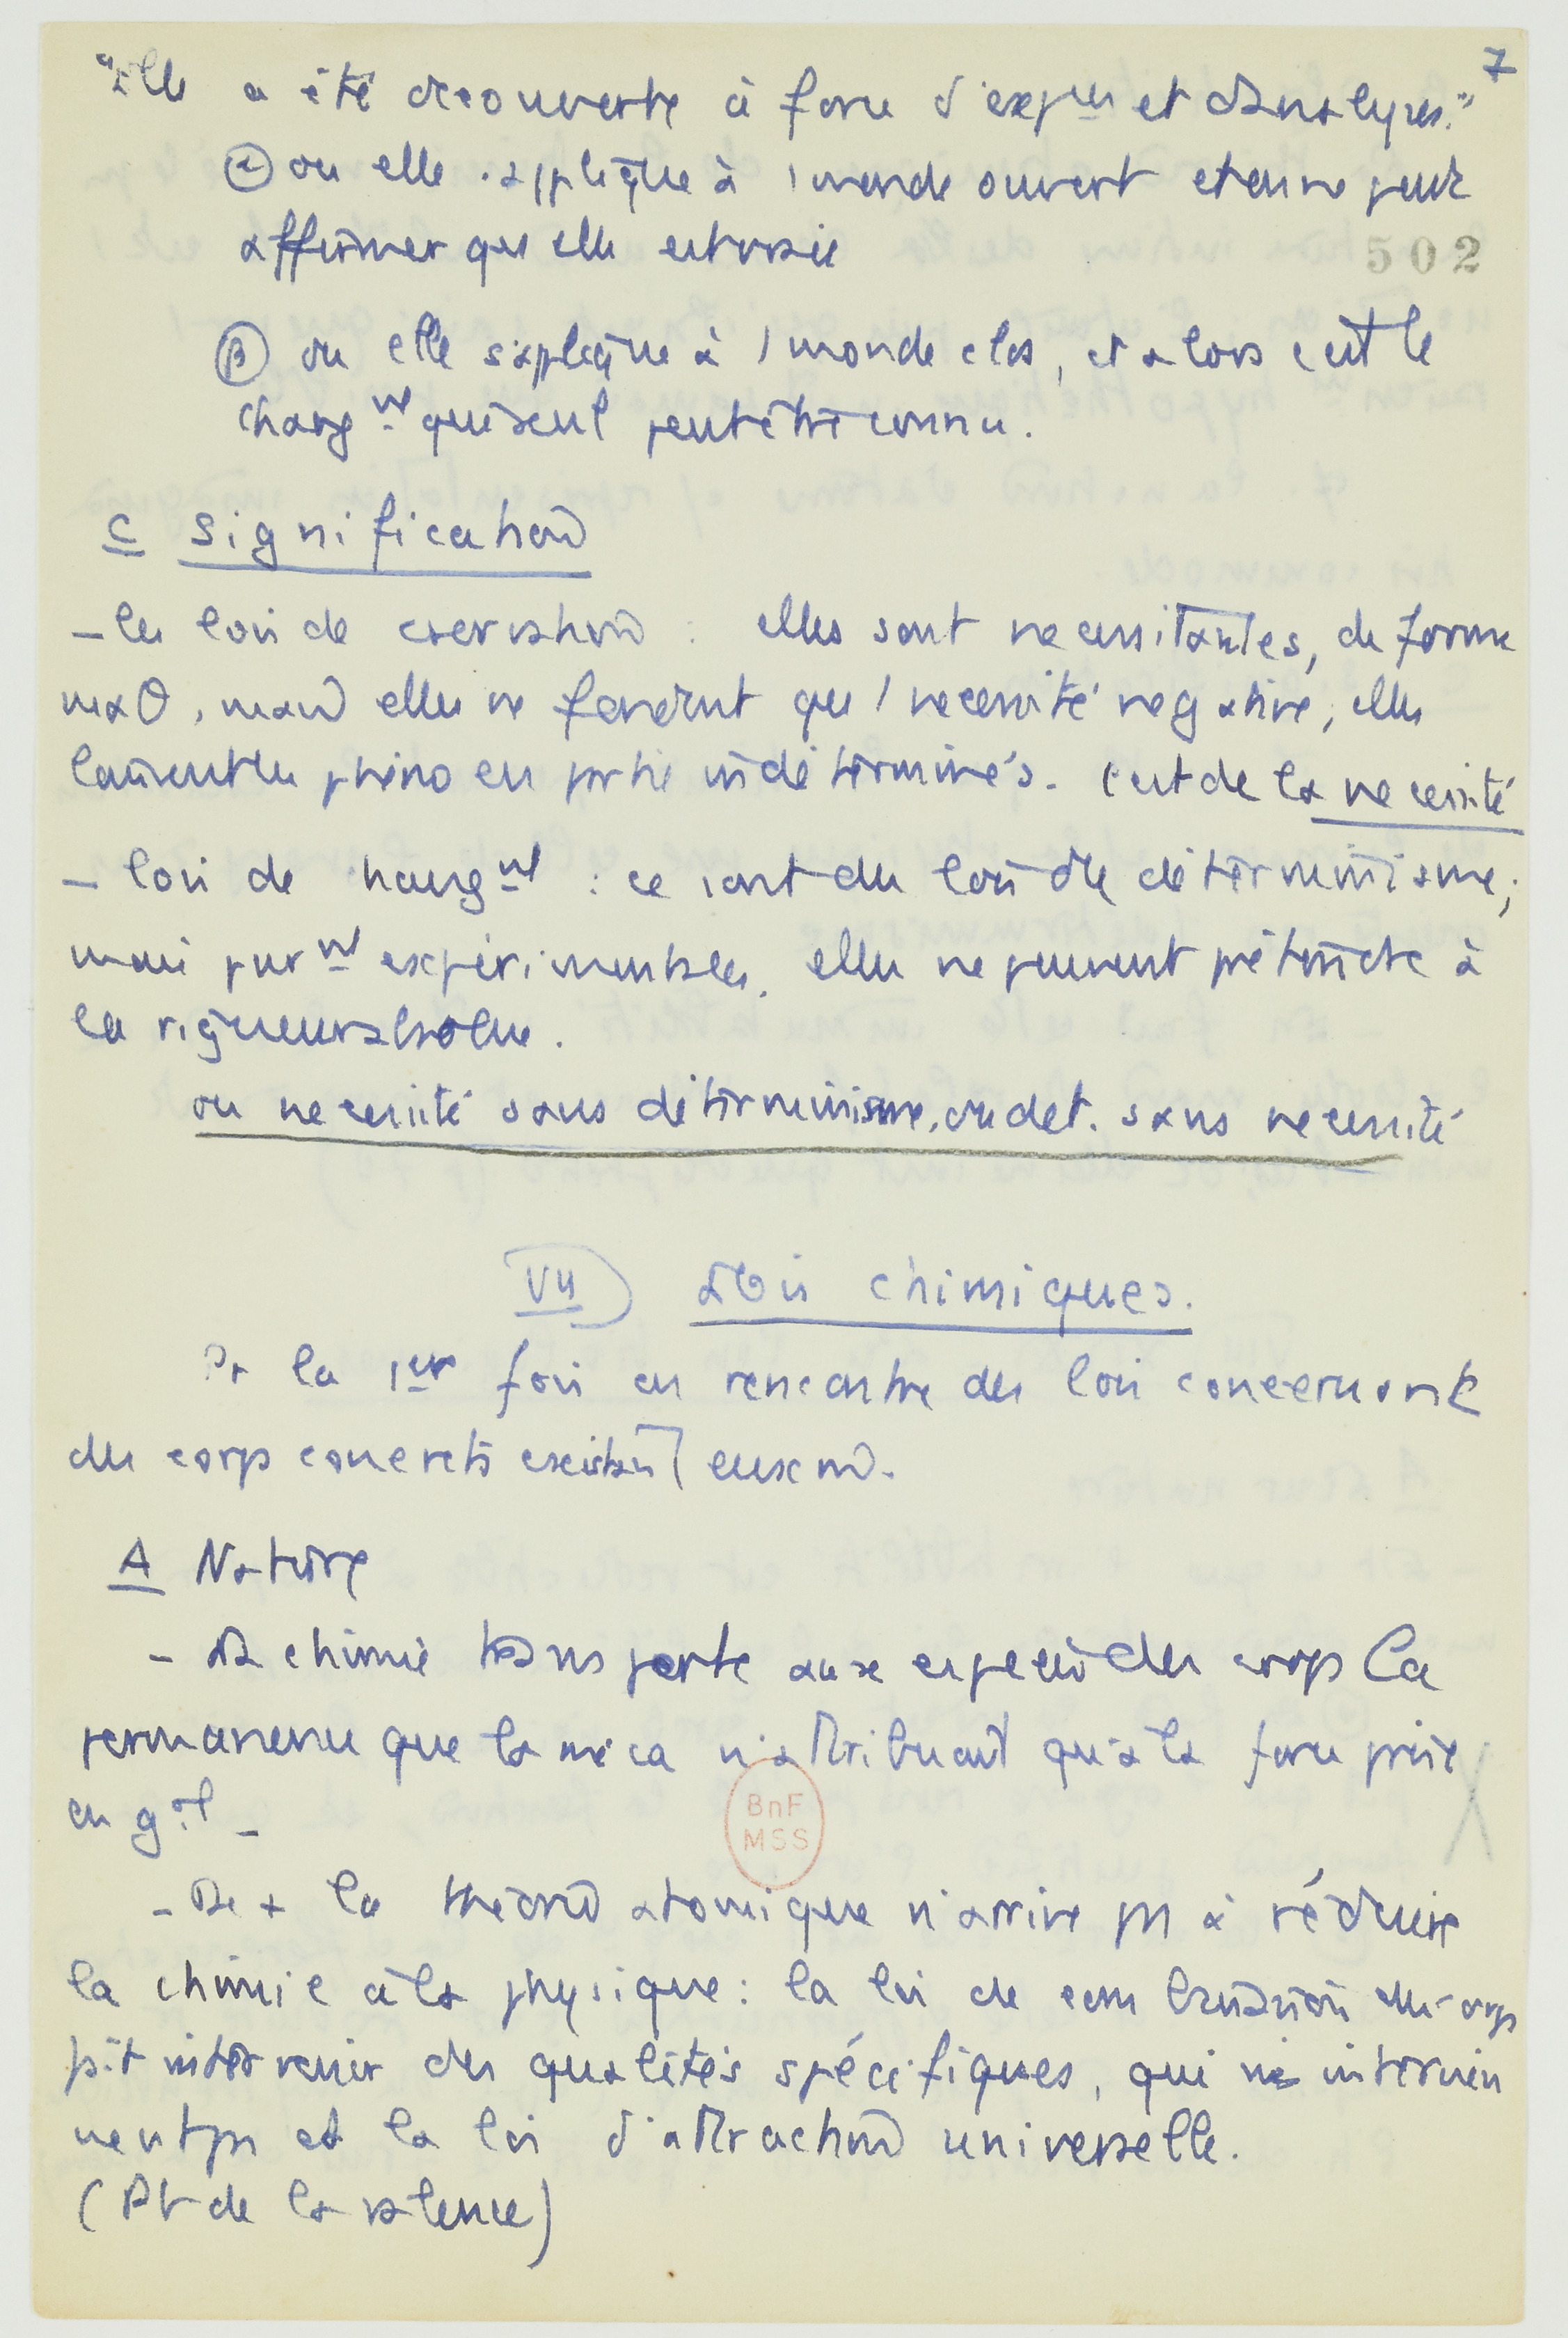 7
"Elle a été découverte à force d'expces et d'analyses."
α ou elle s'applique à 1 monde ouvert et on ne peut
affirmer que elle est vraie
502
β ou elle s'applique à 1 monde clos, et alors c'est le
changnt qui seul peut être connu.
C Signification
- les lois de cservation : elles sont necessitantes, de forme
mais elles ne que 1 necessité negative, elles
laissent les phéno en partie indéterminés. C'est de la necessité
- lois de changnt : ce sont des lois de déterminisme;
mais purnt experimentales, elles ne peuvent prétendre à
la rigueur absolue.
ou necessité sans déterminisme, ou det. sans necessité
VII) Lois chimiques.
Pr la 1ere fois on rencontre des lois concernant
des corps concrets existant eux m̂.
A Nature
- La chimie transporte aux espèces des corps la
permanence que la méca n'attribuait qu'à la force prise
en gal -
BnF
MSS
- De + la théorie atomique n'arrive pas à réduire
la chimie à la physique : la loi de combinaison des corps
intervenir des qualités spécifiques, qui ne intervien
nent pas ds la loi d'attraction universelle.
(Pb de la valence)